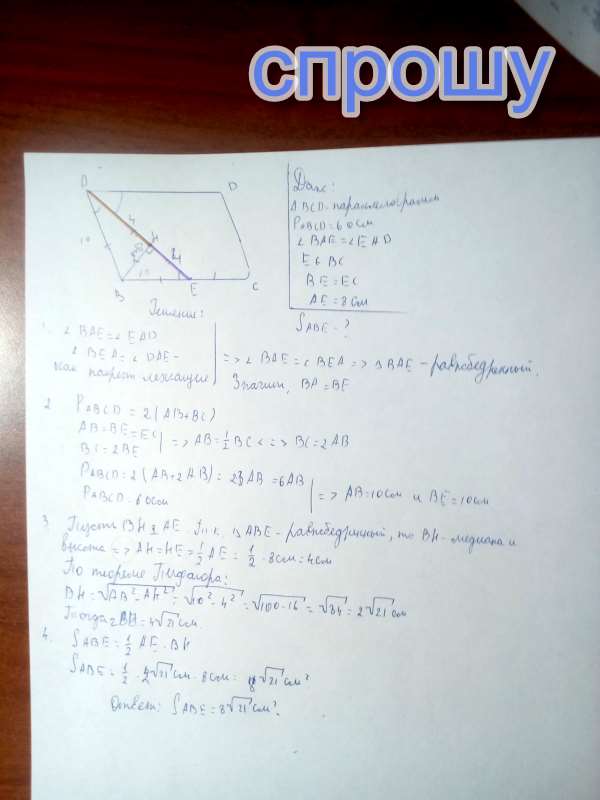 спрошу
D
D
Дано:
ABCD - параллелограмм
PABCD = 60см
∠BAE = ∠EAD
E ∈ BC
BE = EC
AE = 8см
SABE - ?
10
4
H
4
10
B
E
C
Решение:
1. ∠BAE = ∠EAD
∠BEA = ∠DAE -
как накрест лежащие
=> ∠BAE = ∠BEA => ΔBAE - равнобедренный.
Значит, BA = BE
2 PABCD = 2(AB+BC)
AB = BE = EC
BC = 2BE
=> AB = 1/2 BC <=> BC = 2AB
PABCD = 2(AB+2AB) = 2·3AB = 6AB
PABCD = 60см
=> AB = 10см и BE = 10см
3. Пусть BH ⊥ AE. Т.к. ΔABE - равнобедренный, то BH - медиана и
высота => AH = HE = 1/2 AE = 1/2 · 8см = 4см
По теореме Пифагора:
BH = √AB² - AH² = √10² - 4² = √100-16 = √84 = 2√21 см
Тогда 2BH = 4√21 см
4. SABE = 1/2 AE · BH
SABE = 1/2 · 2√21 см · 8см = 8√21 см²
Ответ: SABE = 8√21 см².